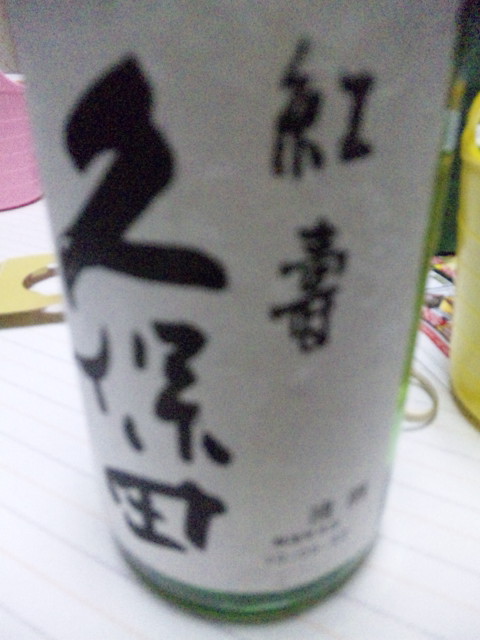 紅寿
久保田